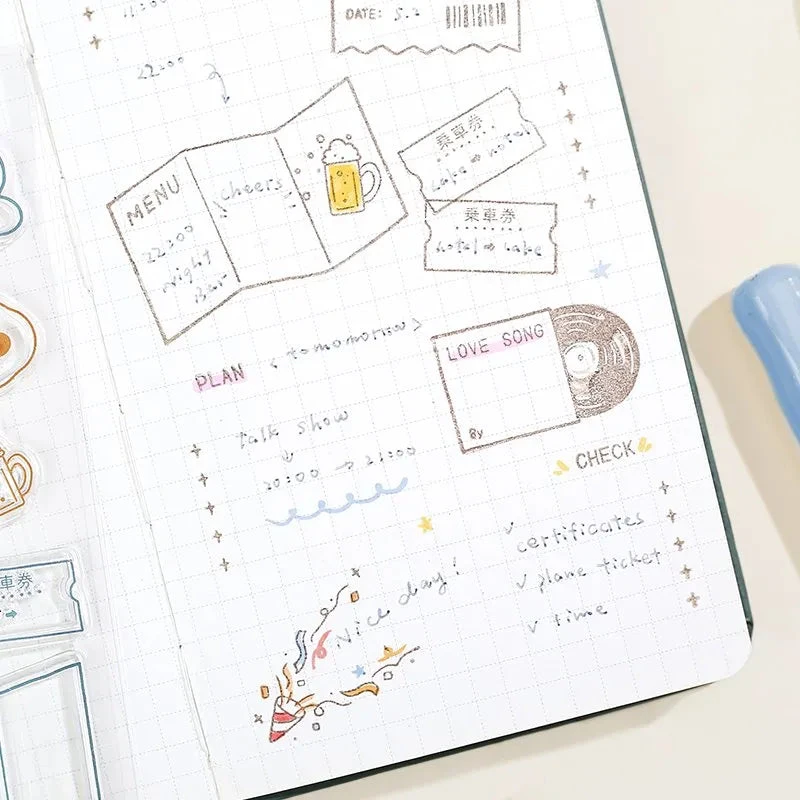 11:00
DATE: 5.2
22:00
MENU
22:00
night
Bar
cheers
乗車券
Lake ⇒ hotel
乗車券
hotel ⇒ Lake
PLAN
< tomomorrow >
LOVE SONG
By
talk show
20:00 → 21:00
CHECK
✓ certificates
✓ plane ticket
✓ time
Nice day!
車券